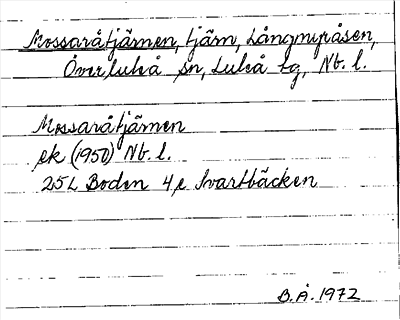 Mossaråtjärnen, tjärn, Långmyråsen,
Överluleå sn, Luleå tg, Nb. l.
Mossaråtjärnen
ek (1950) Nb. l.
25L Boden 4e Svartbäcken
B.Å. 1972